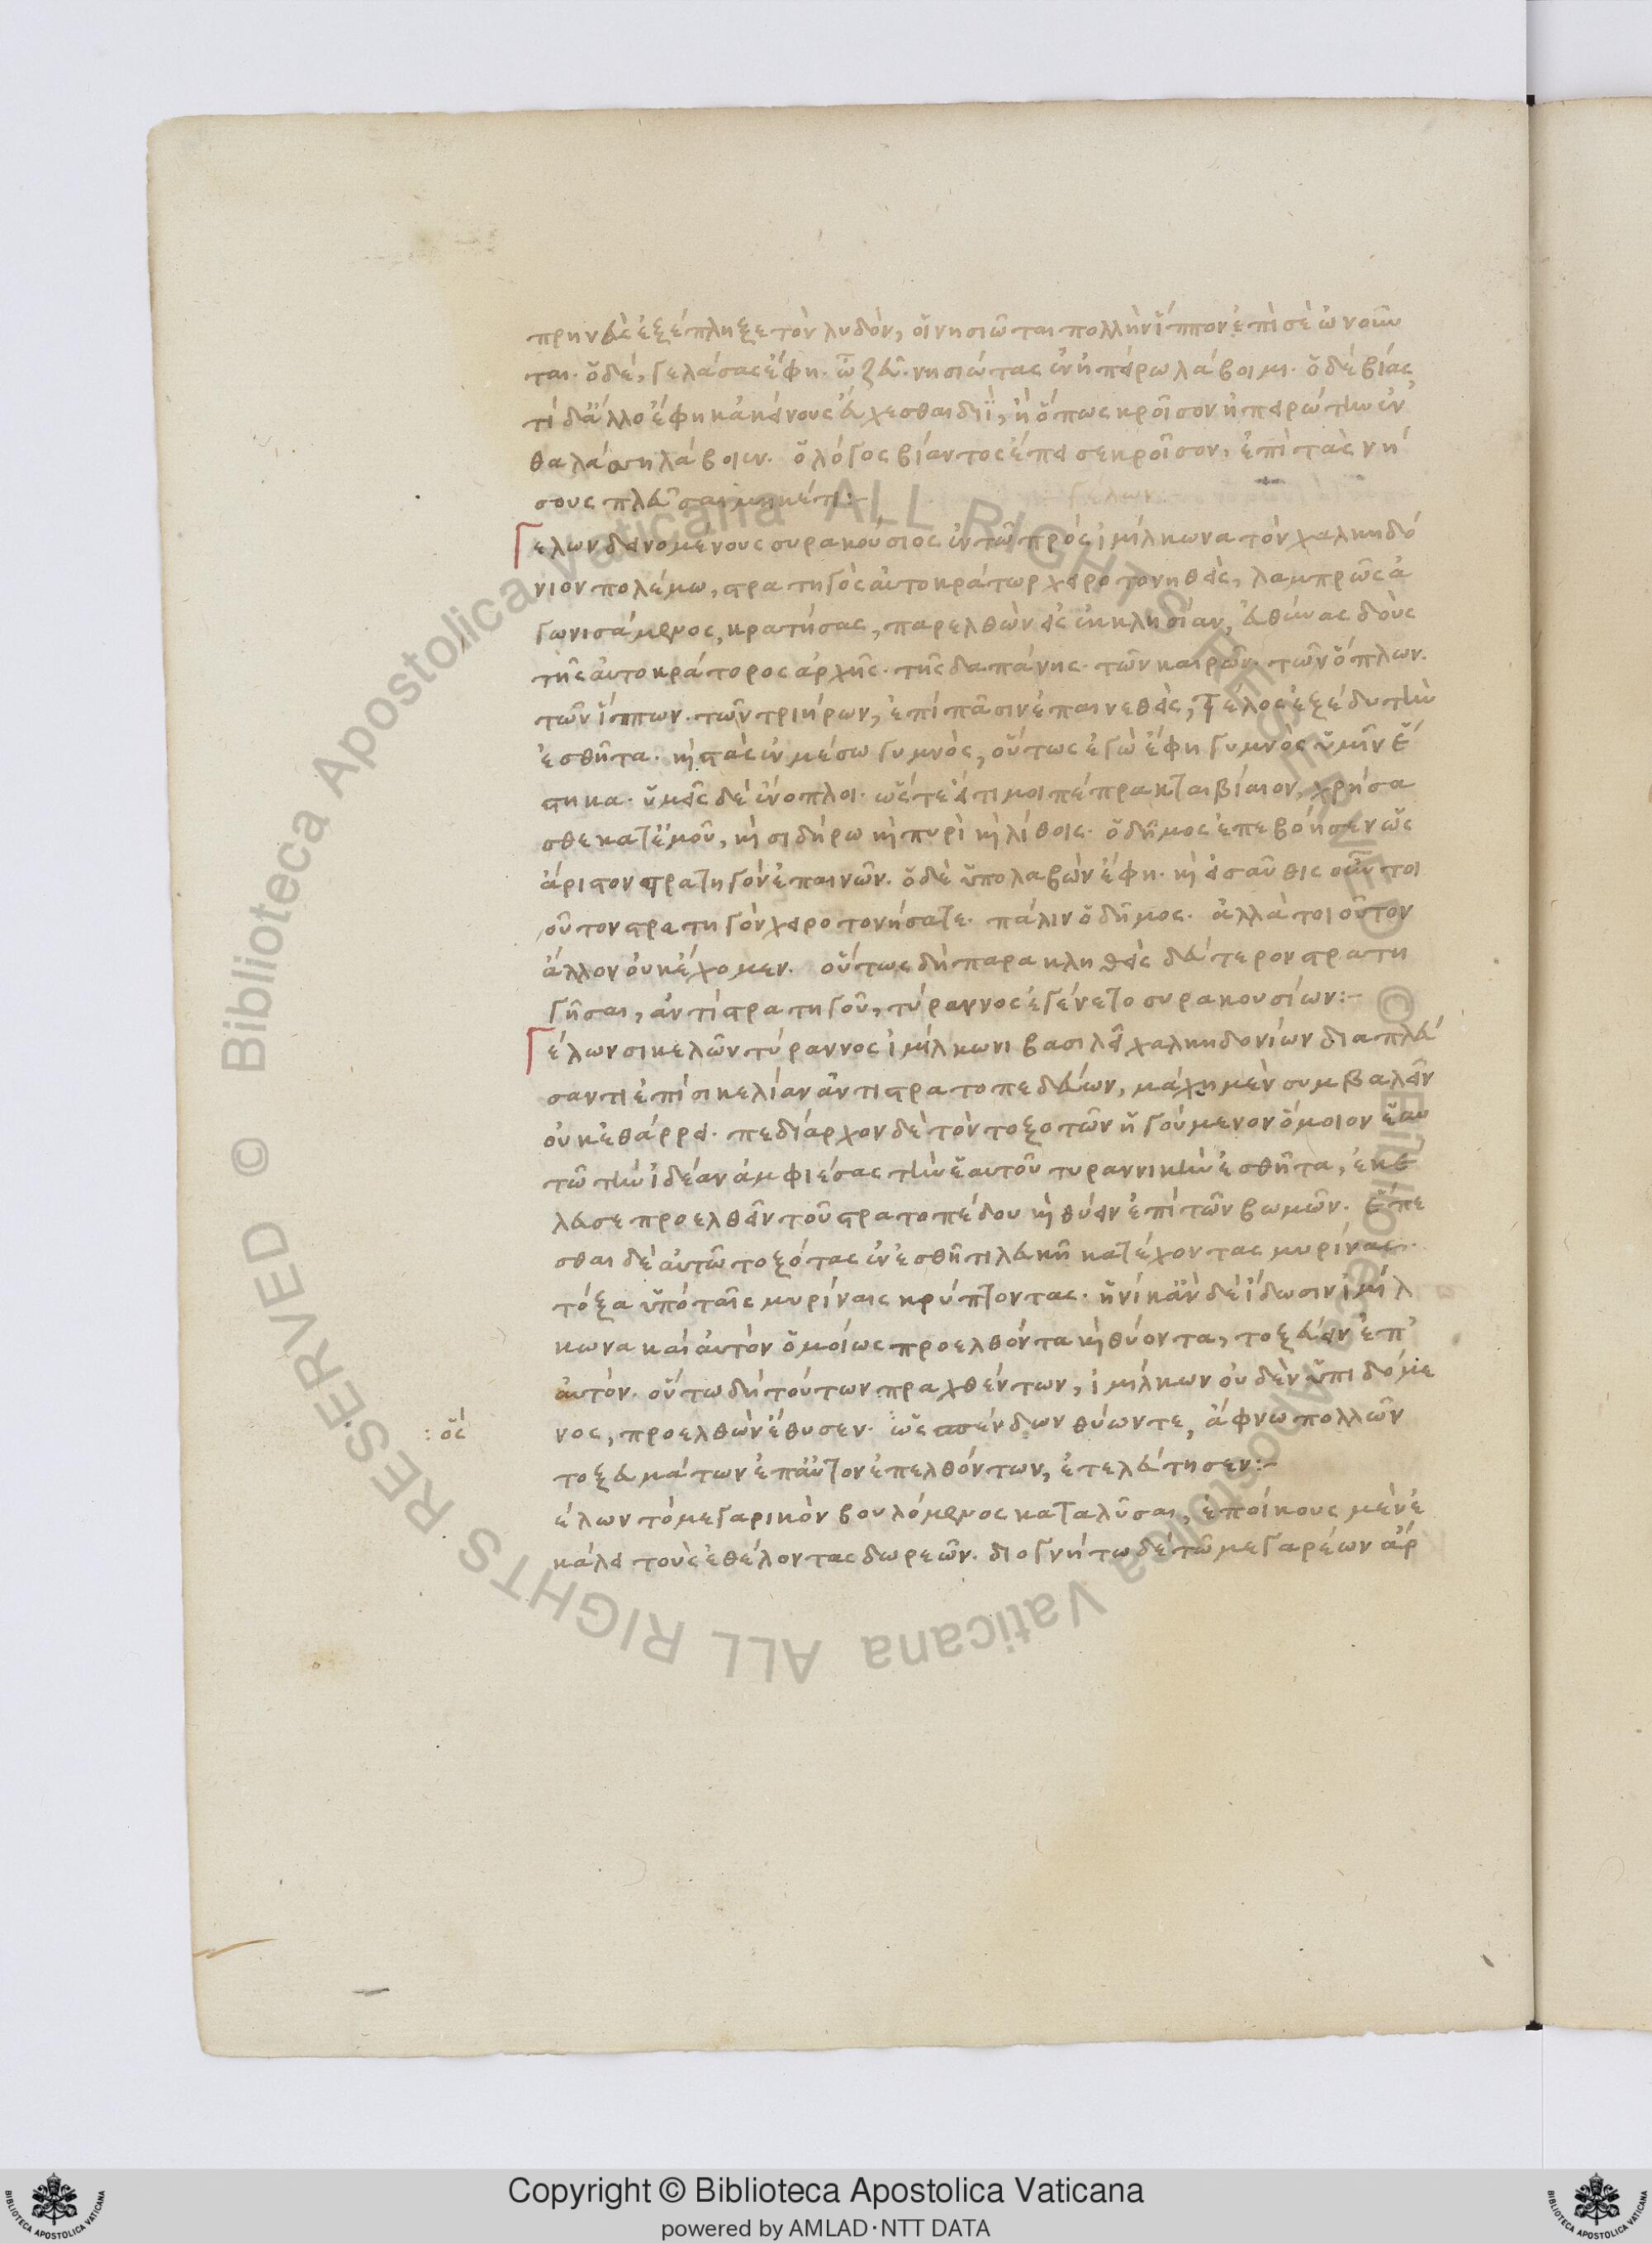 πρηνεὺς ἐξέπληξε τὸν λυδὸν, οἵ νησιῶται πολλὴν ἵππον ἐπὶ σὲ ὠνοῦν
ται. ὅ δέ, γελάσας ἔφη. ὦ ζεῦ. νησιώτας ἐν ἠπείρω λάβοιμι. ὅ δὲ βίας
τί δ' ἄλλο ἔφη κἀκείνους εὔχεσθαι διῒ, ἢ ὅπως κροῖσον ἠπειρώτην ἐν
θαλάττη λάβοιεν. ὅ λόγος βίαντος ἔπεισε κροῖσον, ἐπὶ τὰς νή
σους πλεῦσαι μηκέτι:-
Γελων δεινομενους συρακούσιος ἐν τῶ πρὸς ἱμίλκωνα τὸν χαλκηδό
νιον πολέμω, στρατηγὸς αὐτοκράτωρ χειροτονηθεὶς, λαμπρῶς ἀ
γωνισάμενος, κρατήσας, παρελθὼν εἰς ἐκκλησίαν, εὐθύνας δοὺς
τῆς αὐτοκράτορος ἀρχῆς. τῆς δαπάνης. τῶν καιρῶν. τῶν ὅπλων.
τῶν ἵππων. τῶν τριήρων, ἐπὶ πᾶσιν ἐπαινεθεὶς, τέλος ἐξέδυ τὴν
ἐσθῆτα. καὶ στὰς ἐν μέσω γυμνὸς, οὕτως ἐγὼ ἔφη γυμνὸς ὑμῖν ἕ
στηκα. ὑμεῖς δὲ ἔνοπλοι. ὥστε εἴ τι μοι πέπρακται βίαιον, χρήσα
σθε κατ' ἐμοῦ, καὶ σιδήρω καὶ πυρὶ καὶ λίθοις. ὅ δῆμος ἐπεβόησεν ὡς
ἄριστον στρατηγὸν ἐπαινῶν. ὅ δὲ ὑπολαβὼν ἔφη. καὶ εἰσαῦθις οὖν τοι
οῦτον στρατηγὸν χειροτονήσατε. πάλιν ὅ δῆμος. ἀλλὰ τοιοῦτον
ἄλλον οὐκ ἔχομεν. οὕτως δὴ παρακληθεὶς δεύτερον στρατη
γῆσαι, ἀντὶ στρατηγοῦ, τύραννος ἐγένετο συρακουσίων:-
Γέλων σικελῶν τύραννος ἱμίλκωνι βασιλεῖ χαλκηδονίων διαπλεύ
σαντι ἐπὶ σικελίαν ἀντιστρατοπεδεύων, μάχη μὲν συμβαλεῖν
οὐκ ἐθάρρει. πεδίαρχον δὲ τὸν τοξοτῶν ἡγούμενον ὅμοιον ἑαυ
τῶ τὴν ἰδέαν ἀμφιέσας τὴν ἑαυτοῦ τυραννικὴν ἐσθῆτα, ἐκέ
λευσε προελθεῖν τοῦ στρατοπέδου καὶ θύειν ἐπὶ τῶν βωμῶν. ἕπε
σθαι δὲ αὐτῶ τοξότας ἐν ἐσθῆτι λευκῆ κατέχοντας μυρίνας.
τόξα ὑπὸ ταῖς μυρίναις κρύπτοντας. ἡνίκ' ἂν δὲ ἴδωσιν ἱμίλ
κωνα καὶ αὐτὸν ὁμοίως προελθόντα καὶ θύοντα, τοξεύειν ἐπ'
αὐτόν. οὕτω δὴ τούτων πραχθέντων, ἱμίλκων οὐδὲν ὑπιδόμε
νος, προελθὼν ἔθυσεν. ὡς σπένδων θύων τε, ἄφνω πολλῶν
: ὅς
τοξευμάτων ἐπ' αὐτὸν ἐπελθόντων, ἐτελεύτησεν:-
έλων τὸ μεγαρικὸν βουλόμενος καταλῦσαι, ἐποίκους μὲν ἐ
κάλει τοὺς ἐθέλοντας δωρεῶν. διογνήτω δὲ τῶ μεγαρέων ἄρ
© Biblioteca Apostolica Vaticana ALL RIGHTS RESERVED
© Biblioteca Apostolica Vaticana ALL RIGHTS RESERVED
Copyright © Biblioteca Apostolica Vaticana
powered by AMLAD·NTT DATA
BIBLIOTECA APOSTOLICA VATICANA
BIBLIOTECA APOSTOLICA VATICANA